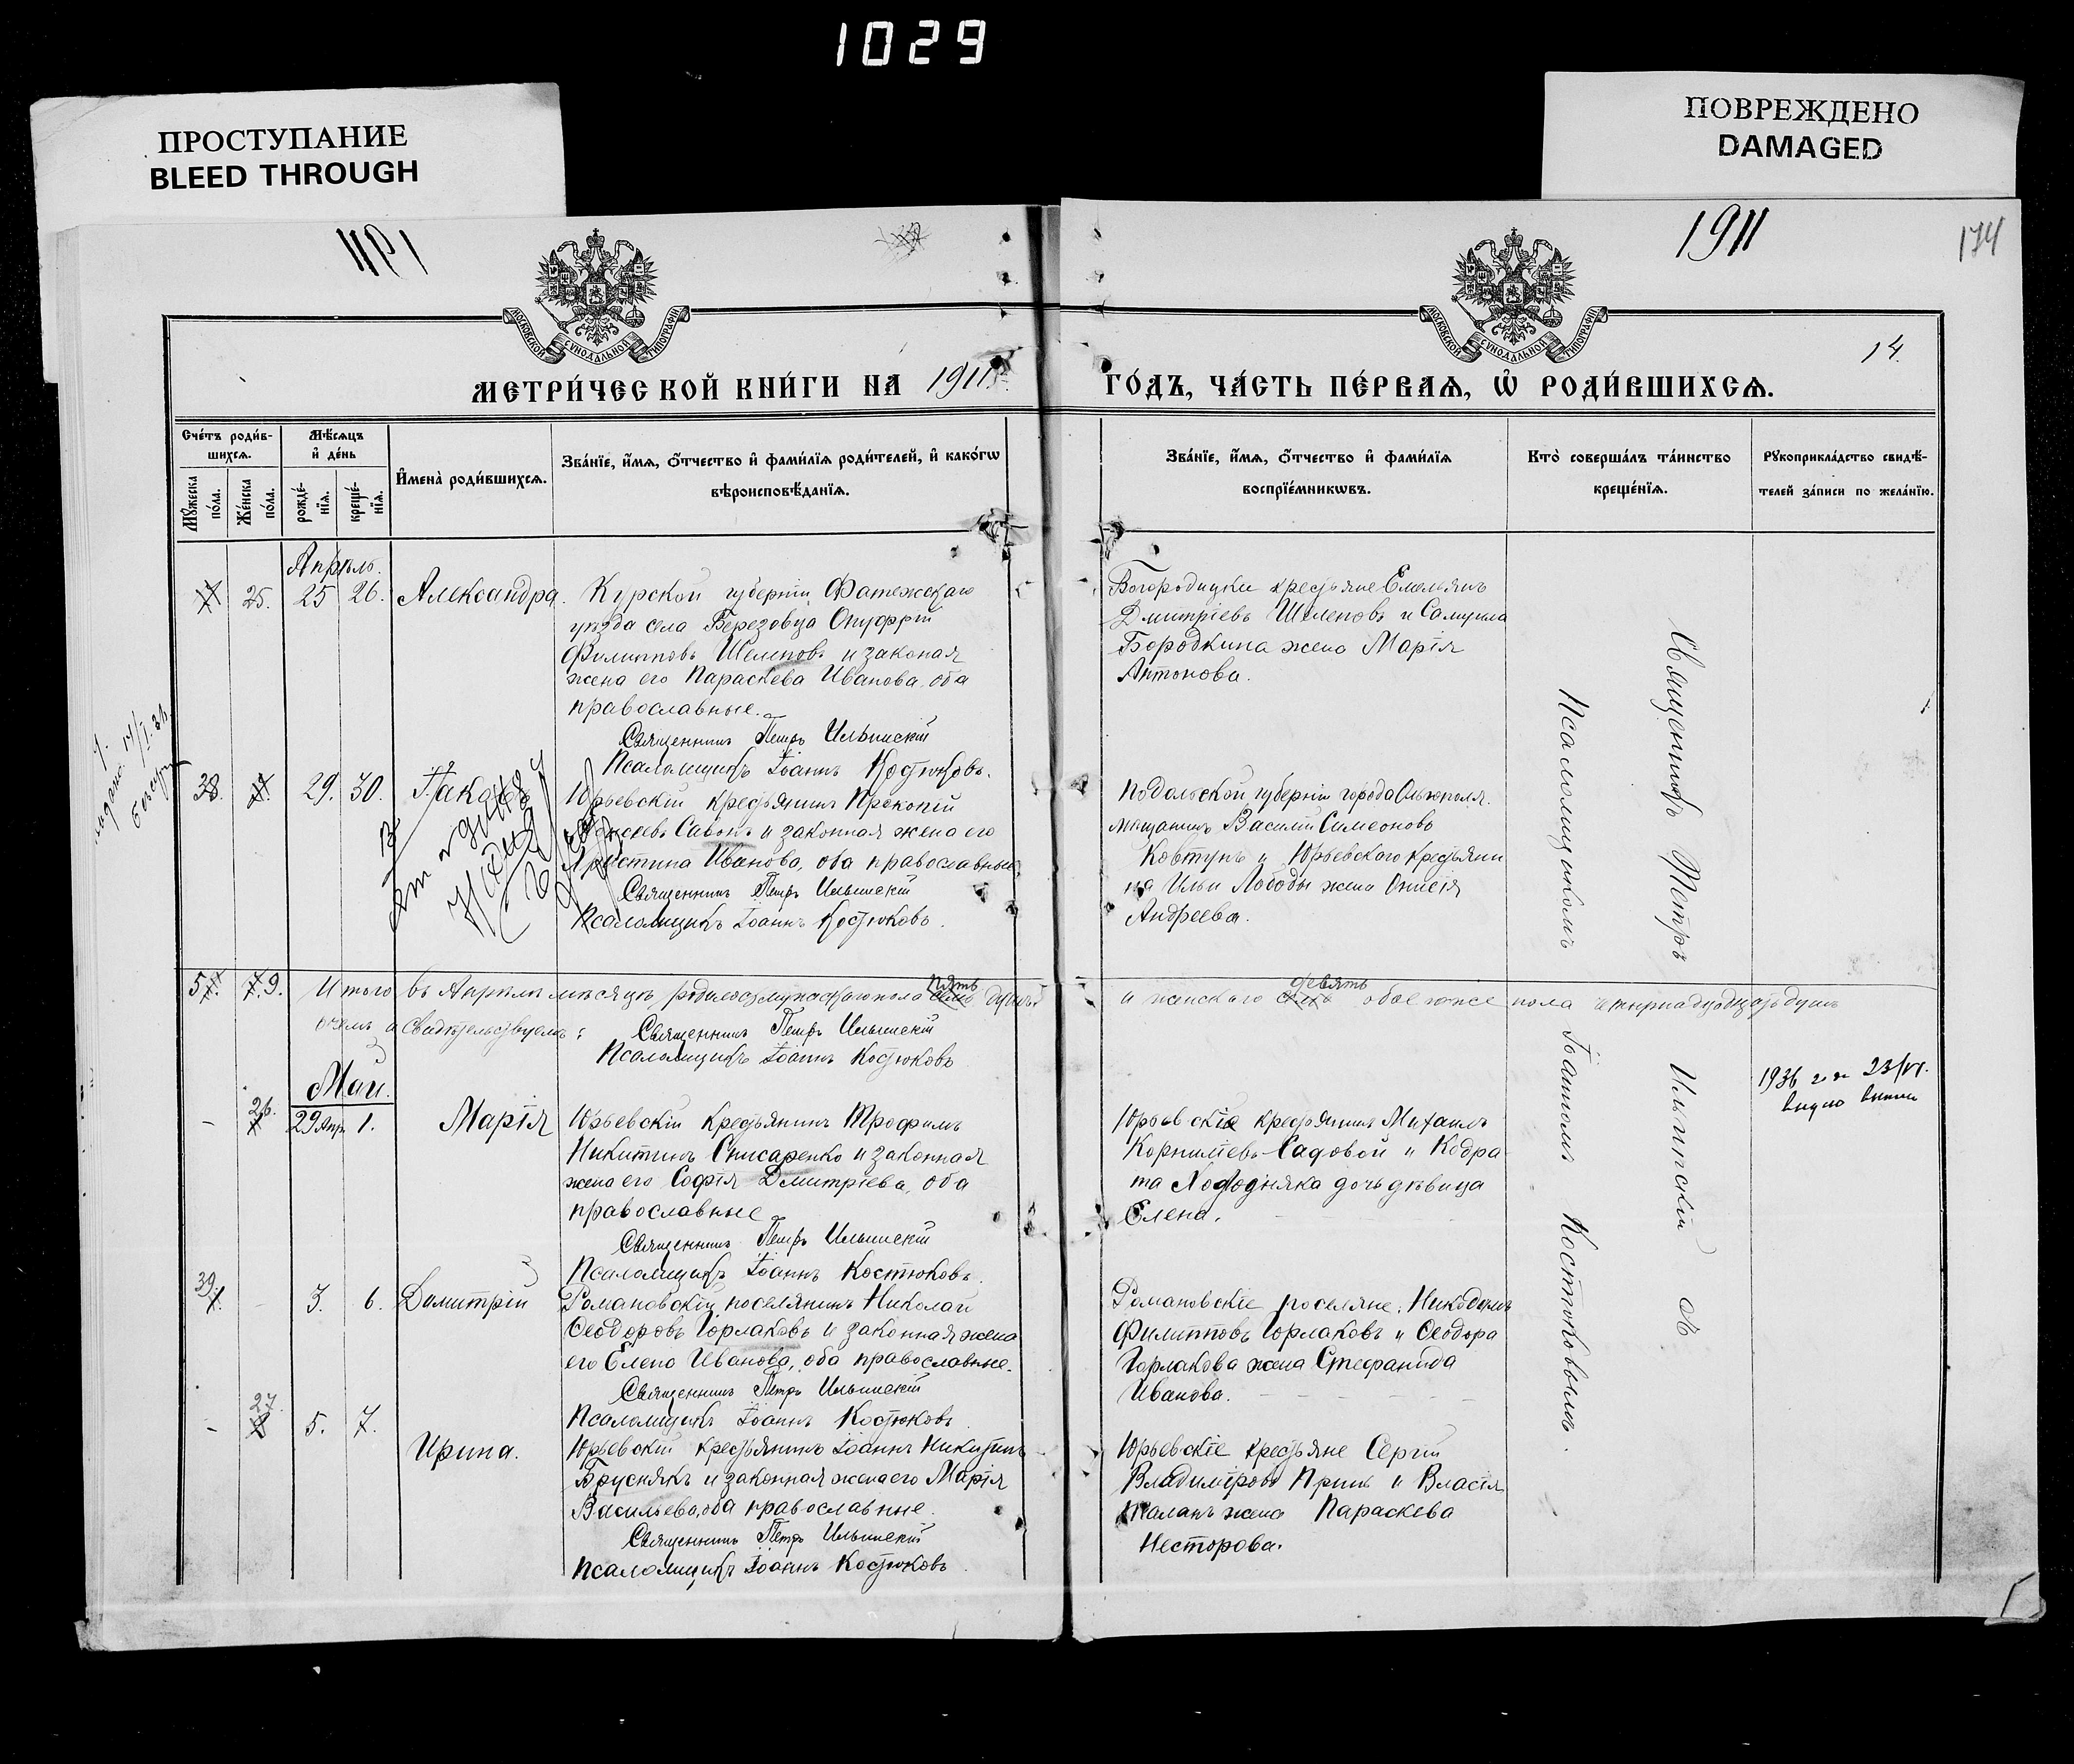 1029
ПРОСТУПАНИЕ
BLEED THROUGH
ПОВРЕЖДЕНО
DAMAGED
1911
174
МОСКОВСКОЙ СѴНОДАЛЬНОЙ ТИПОГРАФІИ
МОСКОВСКОЙ СѴНОДАЛЬНОЙ ТИПОГРАФІИ
14.
МЕТРИ́ЧЕСКОЙ КНИ́ГИ НА 1911
ГО́ДЪ, ЧА́СТЬ ПЕ́РВАѦ, Ѡ҆ РОДИ́ВШИХСѦ.
Сче́тъ роди́в-
шихсѧ.
Мѣ́сѧцъ
и҆ де́нь
Мꙋ́жеска по́ла.
Же́нска по́ла.
рожде́-
нїѧ.
креще́-
нїѧ.
И҆мена̀ роди́вшихсѧ.
Зва́нїе, и҆́мѧ, ѻ҆́тчество и҆ фами́лїѧ роди́телей, и҆ како́гѡ
вѣроисповѣ́данїѧ.
Зва́нїе, и҆́мѧ, ѻ҆́тчество и҆ фами́лїѧ
воспрїе́мникѡвъ.
Кто̀ соверша́лъ та́инство
креще́нїѧ.
Рꙋкоприкла́дство свидѣ́-
телей за́писи по жела́нїю.
Апрѣль.
25. 25 26. Александра.
Курской губерніи Фатежскаго
уѣзда села Березовца Онуфрій
Филипповъ Шелеповъ и законая
жена его Параскева Иванова, оба
православные.
Священникъ Петръ Ильинскій
Псаломщикъ Іоаннъ Костюковъ.
Богородицкіе крестьяне Емельянъ
Дмитріевъ Шелеповъ и Самуила
Бородкина жена Марія
Антонова.
38. 29. 30. Іаковъ
Юрьевскій крестьянинъ Прокопій
Савонъ и законная жена его
Христина Иванова, оба православные.
Священникъ Петръ Ильинскій
Псаломщикъ Іоаннъ Костюковъ.
Подольской губерніи города Ольгополя
мѣщанинъ Василій Симеоновъ
Ковтунъ и Юрьевскаго крестьяни
на Ильи Лободы жена Онисія
Андреева.
5. 9. Итого въ Апрѣлѣ мѣсяцѣ родилось мужскаго пола пять душъ
и женскаго девять обоего же пола четырнадцать душъ
очемъ и свидѣтельствуемъ:
Священникъ Петръ Ильинскій
Псаломщикъ Іоаннъ Костюковъ
Май.
- 26. 29 Апр. 1. Марія
Юрьевскій крестьянинъ Трофимъ
Никитинъ Снисаренко и законная
жена его Софія Дмитріева, оба
православные
Священникъ Петръ Ильинскій
Псаломщикъ Іоаннъ Костюковъ.
Юрьевскіе крестьянинъ Михаилъ
Корниліевъ Садовой и Кодра
та Холодняка дочь дѣвица
Елена.
1936 23/VI.
39 - 3. 6. Димитрій
Романовскій поселянинъ Николай
Ѳеодоровъ Горлаковъ и законная жена
его Елена Иванова, оба православные.
Священникъ Петръ Ильинскій
Псаломщикъ Іоаннъ Костюковъ
Романовскіе поселяне: Никодимъ
Филипповъ Горлаковъ и Ѳеодора
Горлакова жена Стефанида
Иванова.
- 27. 5. 7. Ирина.
Юрьевскій крестьянинъ Іоаннъ Никитинъ
Бруснякъ и законная жена его Марія
Васильева, оба православные.
Священникъ Петръ Ильинскій
Псаломщикъ Іоаннъ Костюковъ.
Юрьевскіе крестьяне Сергій
Владиміровъ и Власія
жена Параскева
Несторова.
Священникъ Петръ Ильинскій съ
Псаломщикомъ Іоанномъ Костюковымъ.